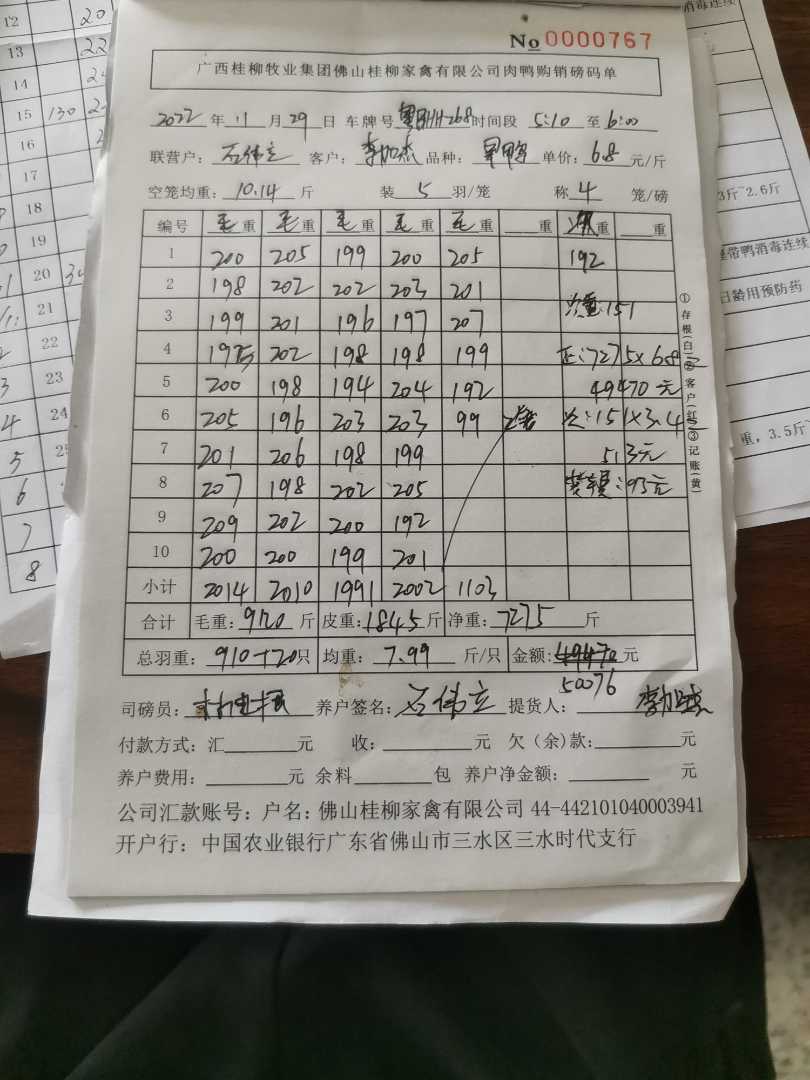 No 0000767
广西桂柳牧业集团佛山桂柳家禽有限公司肉鸭购销磅码单
2022 年 11 月 29 日 车牌号 268 时间段 5:10 至 6:00
联营户: 石伟立 客户: 品种: 单价: 6.8 元/斤
空笼均重: 10.14 斤 装 5 羽/笼 称 4 笼/磅
编号 毛重 毛重 毛重 毛重 毛重 重 重 重
1 200 205 199 200 205 192
2 198 202 202 203 201
3 199 201 196 197 207 次重:151
4 195 202 198 198 199 正:7275×6.8
5 200 198 194 204 192 49470元
6 205 196 203 203 99 次:151×3.4
7 201 206 198 199 513元
8 207 198 202 205 93元
9 209 202 200 192
10 200 200 199 201
小计 2014 2010 1991 2002 1103
合计 毛重: 9120 斤 皮重: 1845 斤 净重: 7275 斤
总羽重: 910+20 只 均重: 7.99 斤/只 金额: 49470 元
50076
司磅员: 养户签名: 石伟立 提货人:
付款方式: 汇 元 收: 元 欠(余)款: 元
养户费用: 元 余料 包 养户净金额: 元
公司汇款账号: 户名: 佛山桂柳家禽有限公司 44-442101040003941
开户行: 中国农业银行广东省佛山市三水区三水时代支行
①存根(白)②客户(红)③记账(黄)
12 20
13 22
14
15 130
16
17
18
19
20
21
22
23
24
5
6
7
8
消毒连续
3斤~2.6斤
带鸭消毒连续
日龄用预防药
重,3.5斤